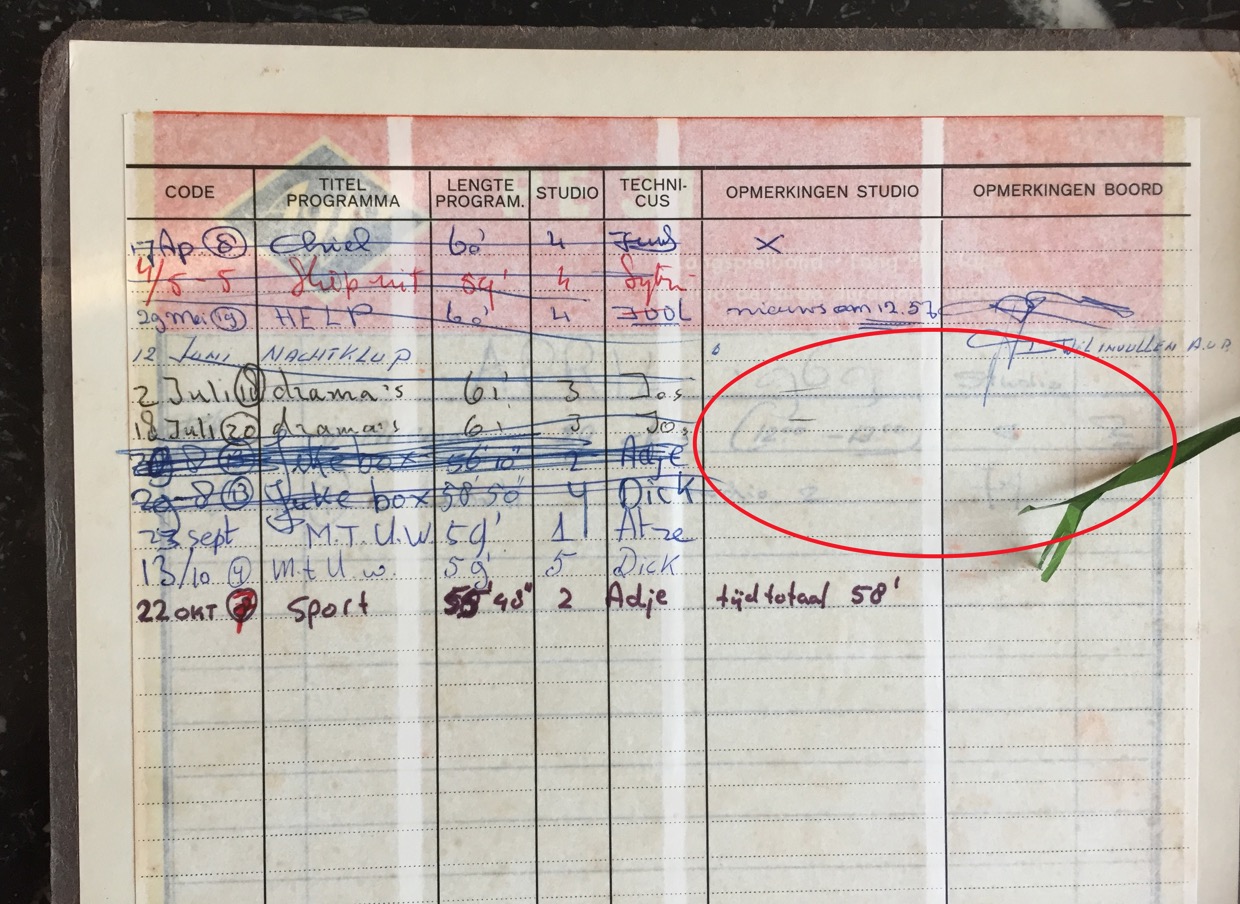 CODE TITEL PROGRAMMA LENGTE PROGRAM. STUDIO TECHNI-CUS OPMERKINGEN STUDIO OPMERKINGEN BOORD
17 Ap (8) 60' 4 X
4/5 - 5 59' 4
29 mei (19) HELP 60' 4 JOOL nieuws om 12.57
12 JUNI NACHTKLUP INVULLEN A.U.B.
2 Juli drama's 61' 3 Jos
18 Juli (20) drama's 61' 3 Jos
Juke box 2 Adje
29-8 (13) Juke box 58'50" 4 Dick
23 sept M.T.U.W. 59' 1 Atze
13/10 (4) M.t.U.w. 59' 5 Dick
22 OKT Sport 48" 2 Adje tijd totaal 58'